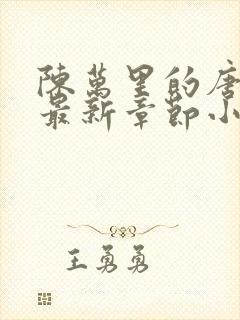 陳萬里的唐
最新章節小
王勇勇